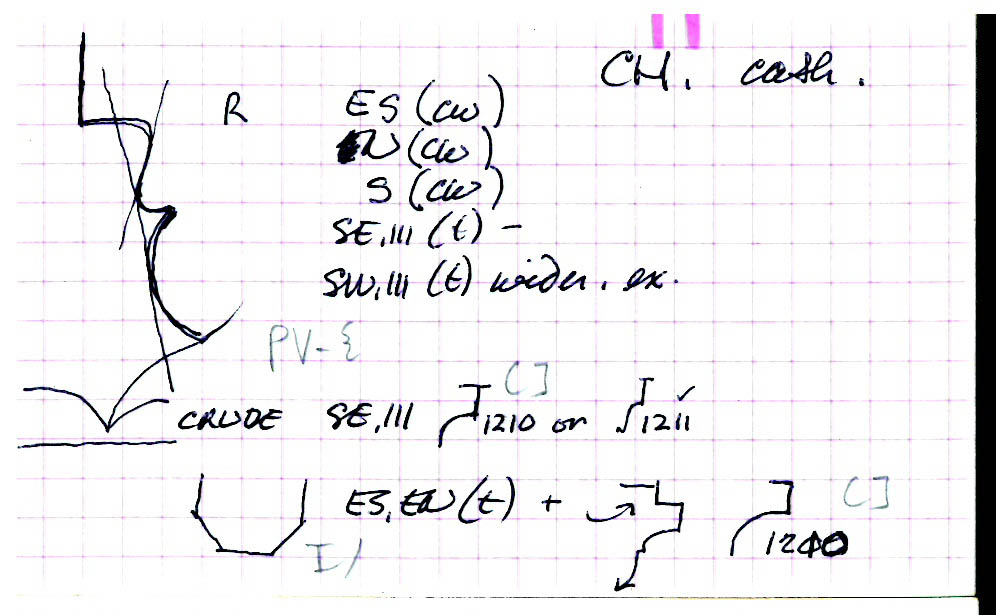 CH. cash.
R ES (cw)
EN (cw)
S (cw)
SE,III (t) –
SW,III (t) wider. ex.
PV-{
CRUDE SE,III 1210 or 1211 ✓ [ ]
ES, EN (t) + 1240 [ ]
I /